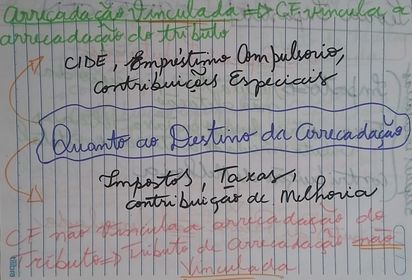 Arrecadação Vinculada => CF vincula a
arrecadação do tributo
CIDE, Empréstimo Compulsorio,
Contribuições Especiais
Quanto ao Destino da Arrecadação
Impostos, Taxas,
contribuição de Melhoria
CF não vincula a arrecadação do
Tributo => Tributo de arrecadação não
Vinculada